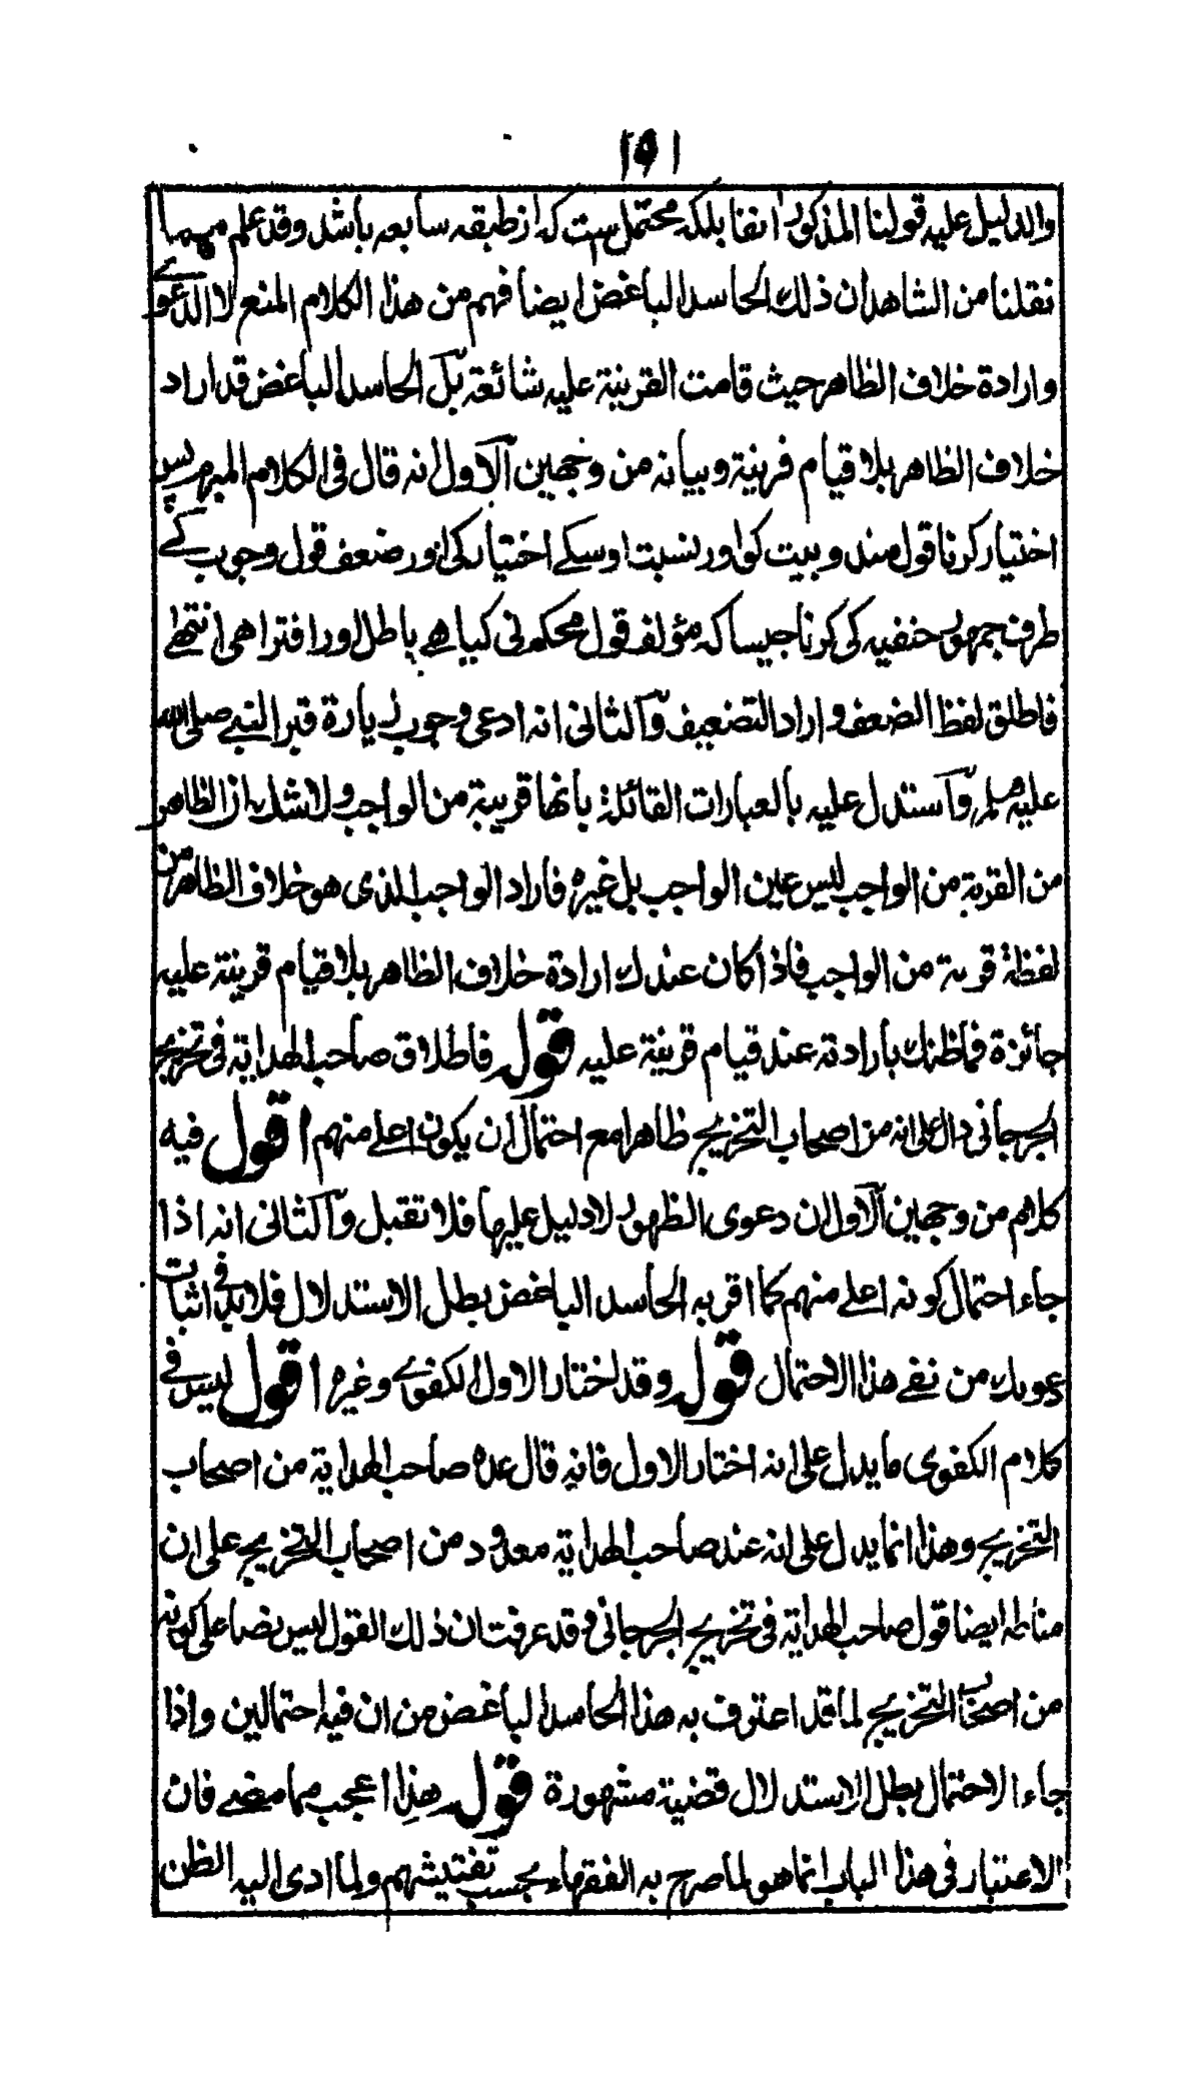 ١٥١
والدليل عليه قولنا المذكور انفا بلكه محتمل ست كه از طبقه سابعه باشد وقد علم مهما
نقلنا من الشاهد ان ذلك الحاسد الباغض ايضا فهم من هذا الكلام المنع لا الدعوے
وارادة خلاف الظاهر حيث قامت القرينة عليه شائعة بل الحاسد الباغض قد اراد
خلاف الظاهر بلا قيام قرينة وبيانه من وجهين الاول انه قال فى الكلام المبرم پس
اختيار كرنا قول مندوبيت كو اور نسبت اوسكے اختيار كى اور ضعف قول وجوب كے
طرف جمهور حنفيه كى كرنا جيسا كه مؤلف قول محكم نى كيا هے باطل اور افترا هى انتهے
فاطلق لفظ الضعف واراد التضعيف والثانى انه ادعى وجوب زيارة قبر النبے صلى الله
عليه وسلم واستدل عليه بالعبارات القائلة بانها قريبة من الواجب ولا شك ان الظاهر
من القربة من الواجب ليس عين الواجب بل غيره فاراد الواجب الذى هو خلاف الظاهر من
لفظة قريبة من الواجب فاذا كان عندك ارادة خلاف الظاهر بلا قيام قرينة عليه
جائزة فما ظنك بارادته عند قيام قرينة عليه قوله فاطلاق صاحب الهداية فى تخريج
الجرجانى دال على انه من اصحاب التخريج ظاهرا مع احتمال ان يكون اعلے منهم اقول فيه
كلام من وجهين الاول ان دعوى الظهور لا دليل عليها فلا تقبل والثانى انه اذا
جاء احتمال كونه اعلے منهم كما اقر به الحاسد الباغض بطل الاستدلال فلا بد فى اثبات
دعويك من نفے هذا الاحتمال قوله وقد اختار الاول الكفوے وغيره اقول ليس فے
كلام الكفوى ما يدل على انه اختار الاول فانه قال عده صاحب الهداية من اصحاب
التخريج وهذا انما يدل على انه عند صاحب الهداية معدود من اصحاب التخريج على ان
مناطه ايضا قول صاحب الهداية فى تخريج الجرجانى وقد عرفت ان ذلك القول ليس نصا على كونه
من اصحاب التخريج لما قد اعترف به هذا الحاسد الباغض من ان فيه احتمالين واذا
جاء الاحتمال بطل الاستدلال قضية مشهورة قوله هذا اعجب مما مضے فان
الاعتبار فى هذا الباب انما هو لما صرح به الفقهاء بحسب تفتيشهم ولما ادى اليه الظن